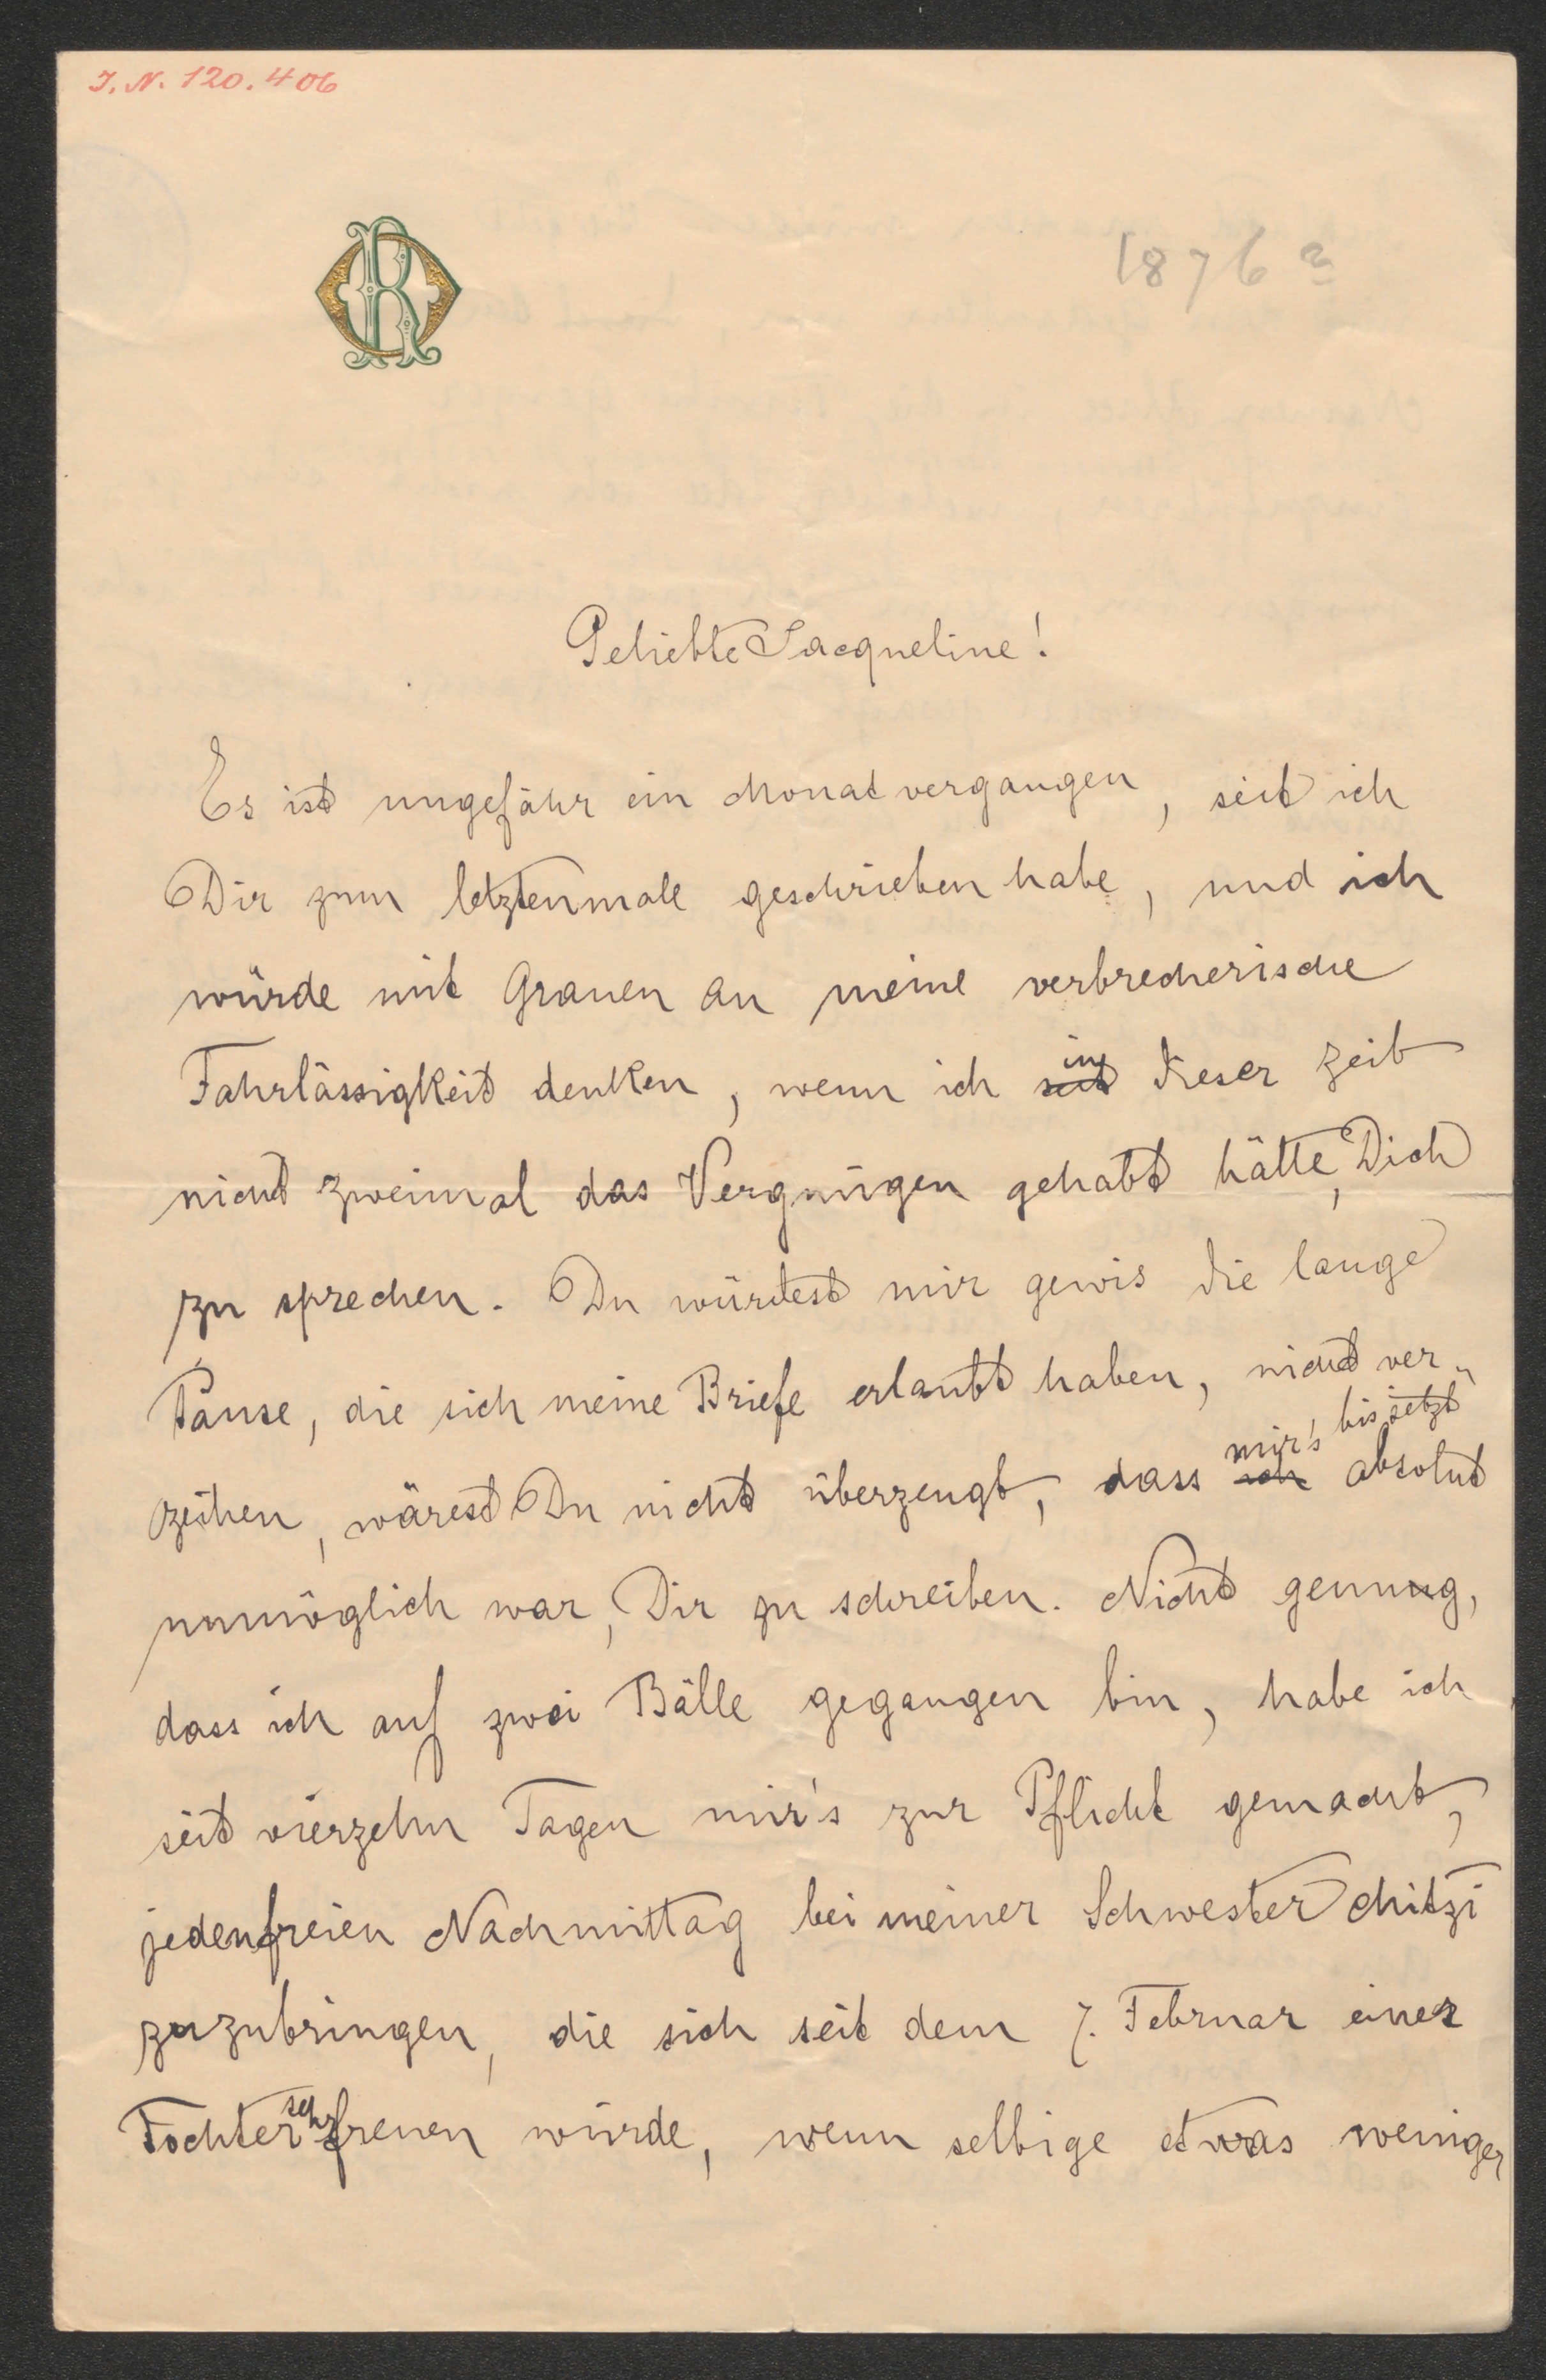 J. N. 120.406
1876
Geliebte Jacqueline!
Es ist ungefähr ein Monat vergangen, seit ich
Dir zum letztenmale geschrieben habe, und ich
würde mit Grauen an meine verbrecherische
Fahrlässigkeit denken, wenn ich seit in dieser Zeit
nicht zweimal das Vergnügen gehabt hätte, Dich
zu sprechen. Du würdest mir gewis die lange
Pause, die sich meine Briefe erlaubt haben, nicht ver-
zeihen, wärest Du nicht überzeugt, dass ich mir's bis jetzt absolut
unmöglich war, Dir zu schreiben. Nicht genug,
dass ich auf zwei Bälle gegangen bin, habe ich
seit vierzehn Tagen mir's zur Pflicht gemacht,
jeden freien Nachmittag bei meiner Schwester Mitzi
zuzubringen, die sich seit dem 7. Februar einer
Tochter sehr freuen würde, wenn selbige etwas weniger